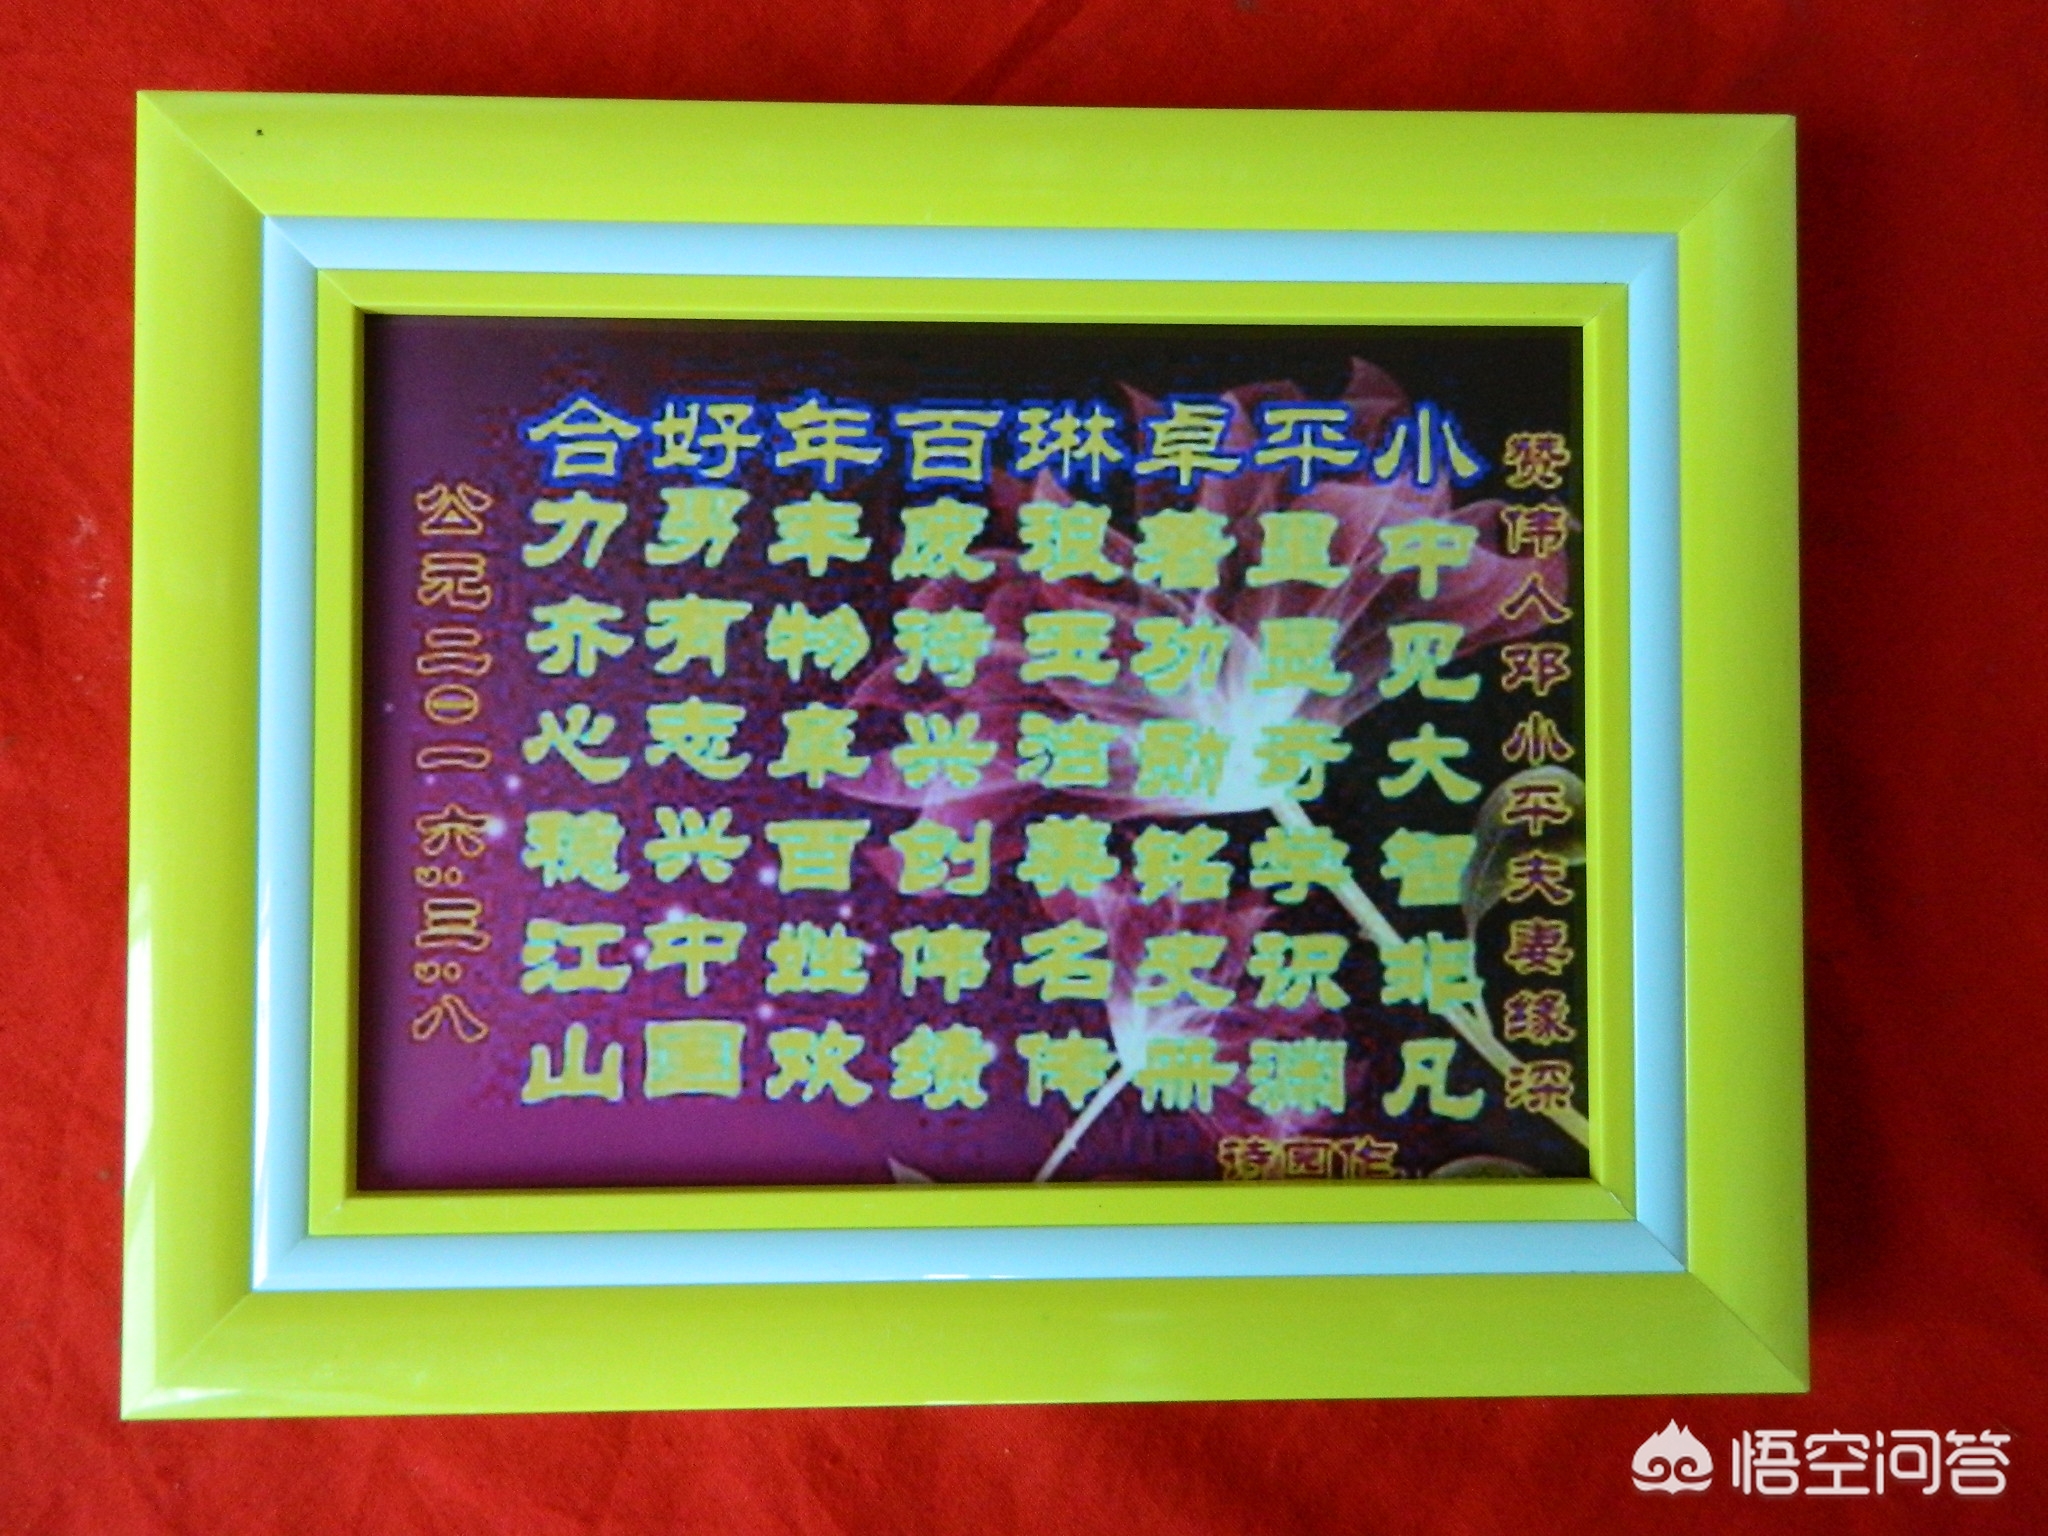 赞伟人邓小平夫妻缘深
小中见大智非凡
平里显奇学识渊
卓著功勋铭史册
琳琅玉洁美名传
百废待兴创伟绩
年丰物阜百姓欢
好男有志兴中国
合力齐心稳江山
公元二〇一六:三:八
诗园作
悟空问答